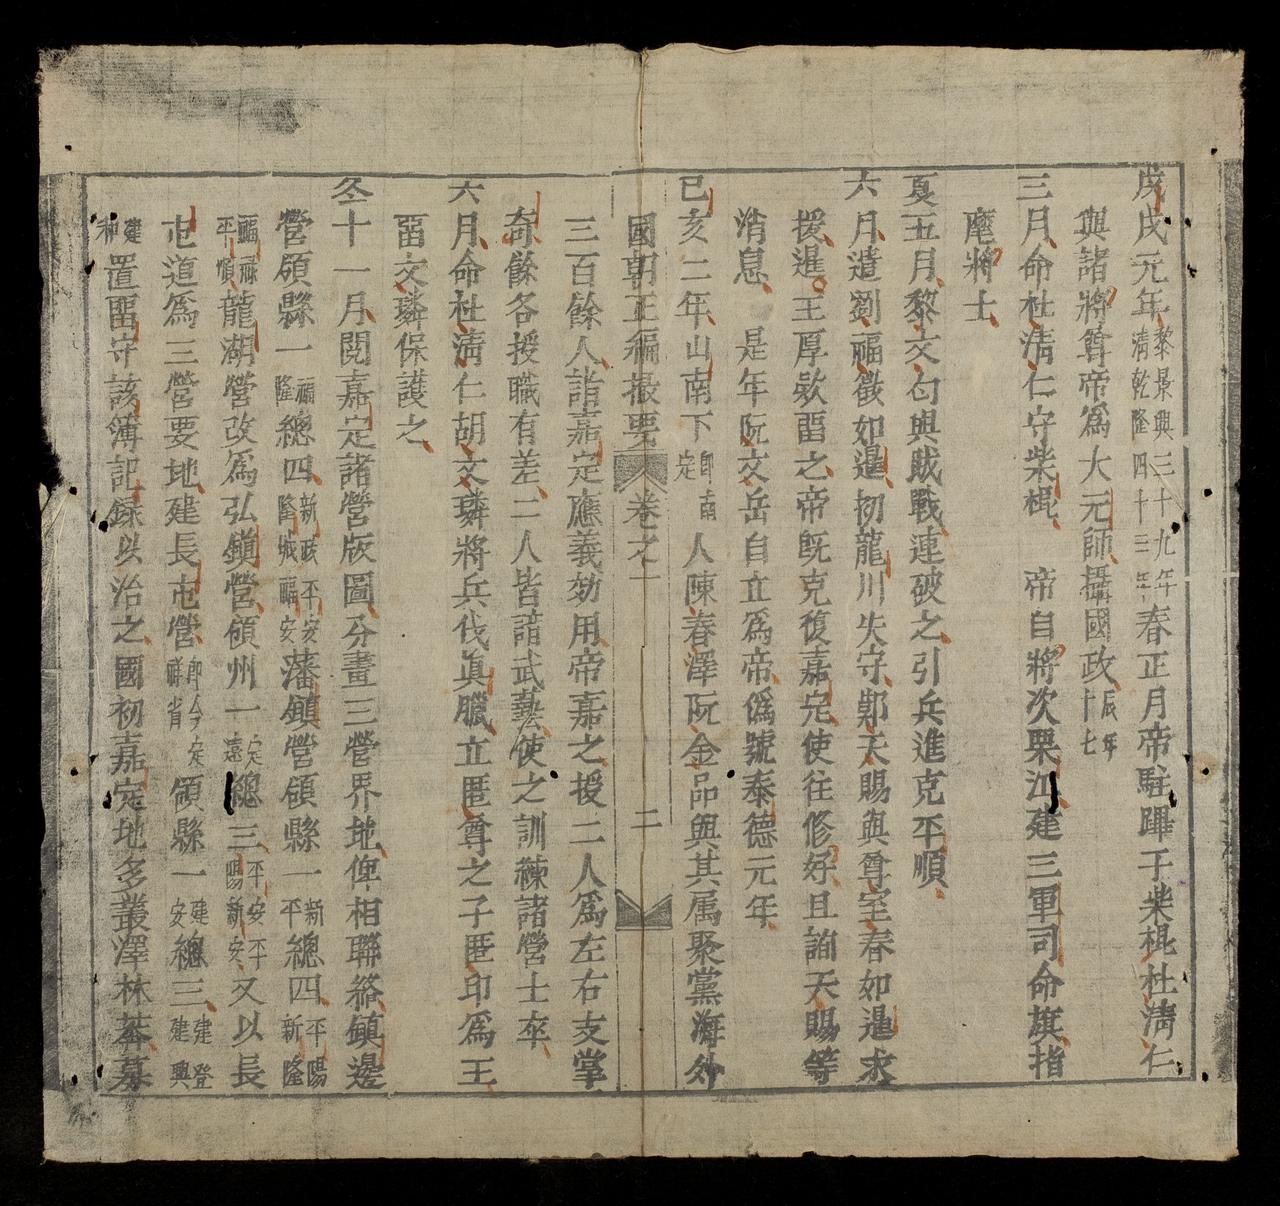 戊戌元年黎景興三十九年清乾隆四十三年春正月帝駐蹕于柴棍杜淸仁
與諸將尊帝爲大元帥攝國政辰年十七
三月命杜淸仁守柴棍 帝自將次栗江建三軍司命旗指
麾將士
夏五月黎文勻與賊戰連破之引兵進克平順
六月遣劉福徵如暹扨龍川失守鄭天賜與尊室春如暹求
援暹王厚欵畱之帝旣克復嘉定使往修好且詢天賜等
消息 是年阮文岳自立爲帝僞號泰德元年
己亥二年山南下卽南定人陳春澤阮金品與其属聚黨海外
國朝正編撮要 卷之一 二
三百餘人詣嘉定應義効用帝嘉之授二人爲左右支掌
奇餘各授職有差二人皆諳武藝使之訓練諸營士卒
六月命杜淸仁胡文璘將兵伐眞臘立匿尊之子匿印爲王
畱文璘保護之
冬十一月閱嘉定諸營版圖分畫三營界地俾相聯絡鎭邊
營領縣一福隆總四新政平安隆城福安藩鎭營領縣一新平總四平陽新隆
福祿平順龍湖營改爲弘鎭營領州一定遠總三平安平陽新安又以長
屯道爲三營要地建長屯營卽今定祥省領縣一建安總三建登建興
建和置畱守該簿記錄以治之國初嘉定地多叢澤林莽募